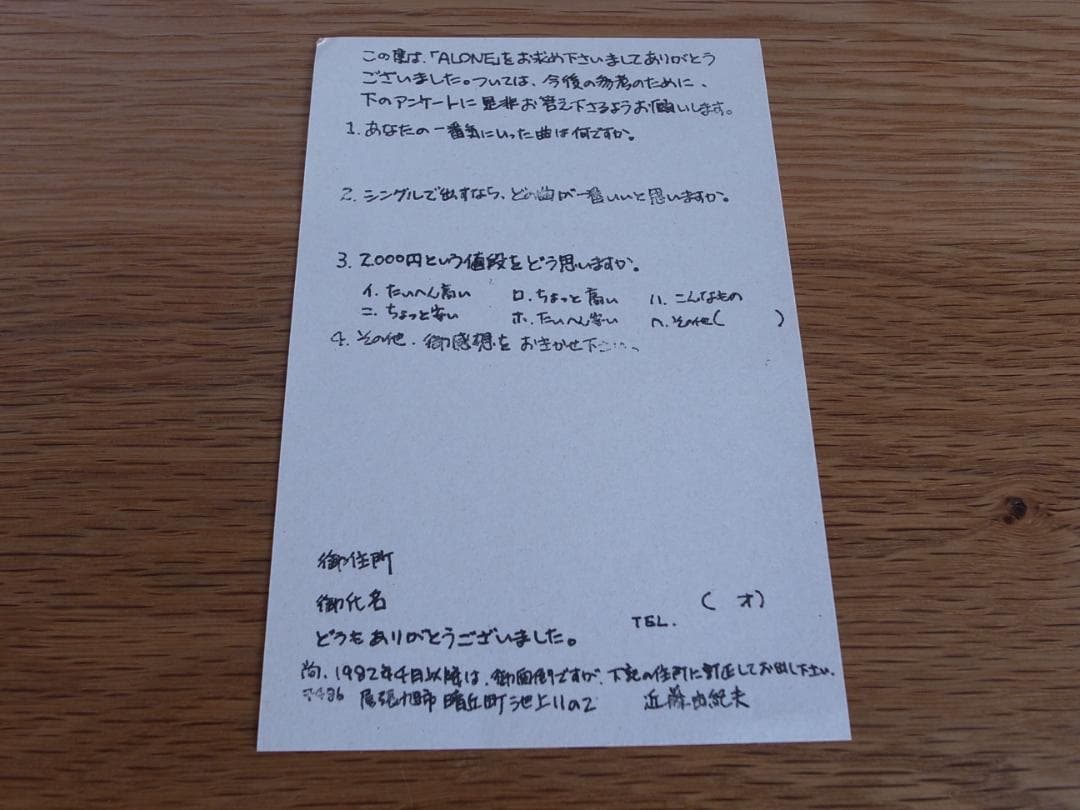 この度は、「ALONE」をお求め下さいましてありがとう
ございました。ついては、今後の参考のために、
下のアンケートに是非お答え下さるようお願いします。
1. あなたの一番気にいった曲は何ですか。
2. シングルで出すなら、どの曲が一番いいと思いますか。
3. 2,000円という値段をどう思いますか。
イ. たいへん高い ロ. ちょっと高い ハ. こんなもの
ニ. ちょっと安い ホ. たいへん安い ヘ. その他( )
4. その他、御感想をお聞かせ下さい。
御住所
御氏名 ( オ)
TEL.
どうもありがとうございました。
尚、1982年4月以降は、御面倒ですが、下記の住所に訂正してお出し下さい。
〒486 尾張旭市 晴丘町池上11の2 近藤由紀夫